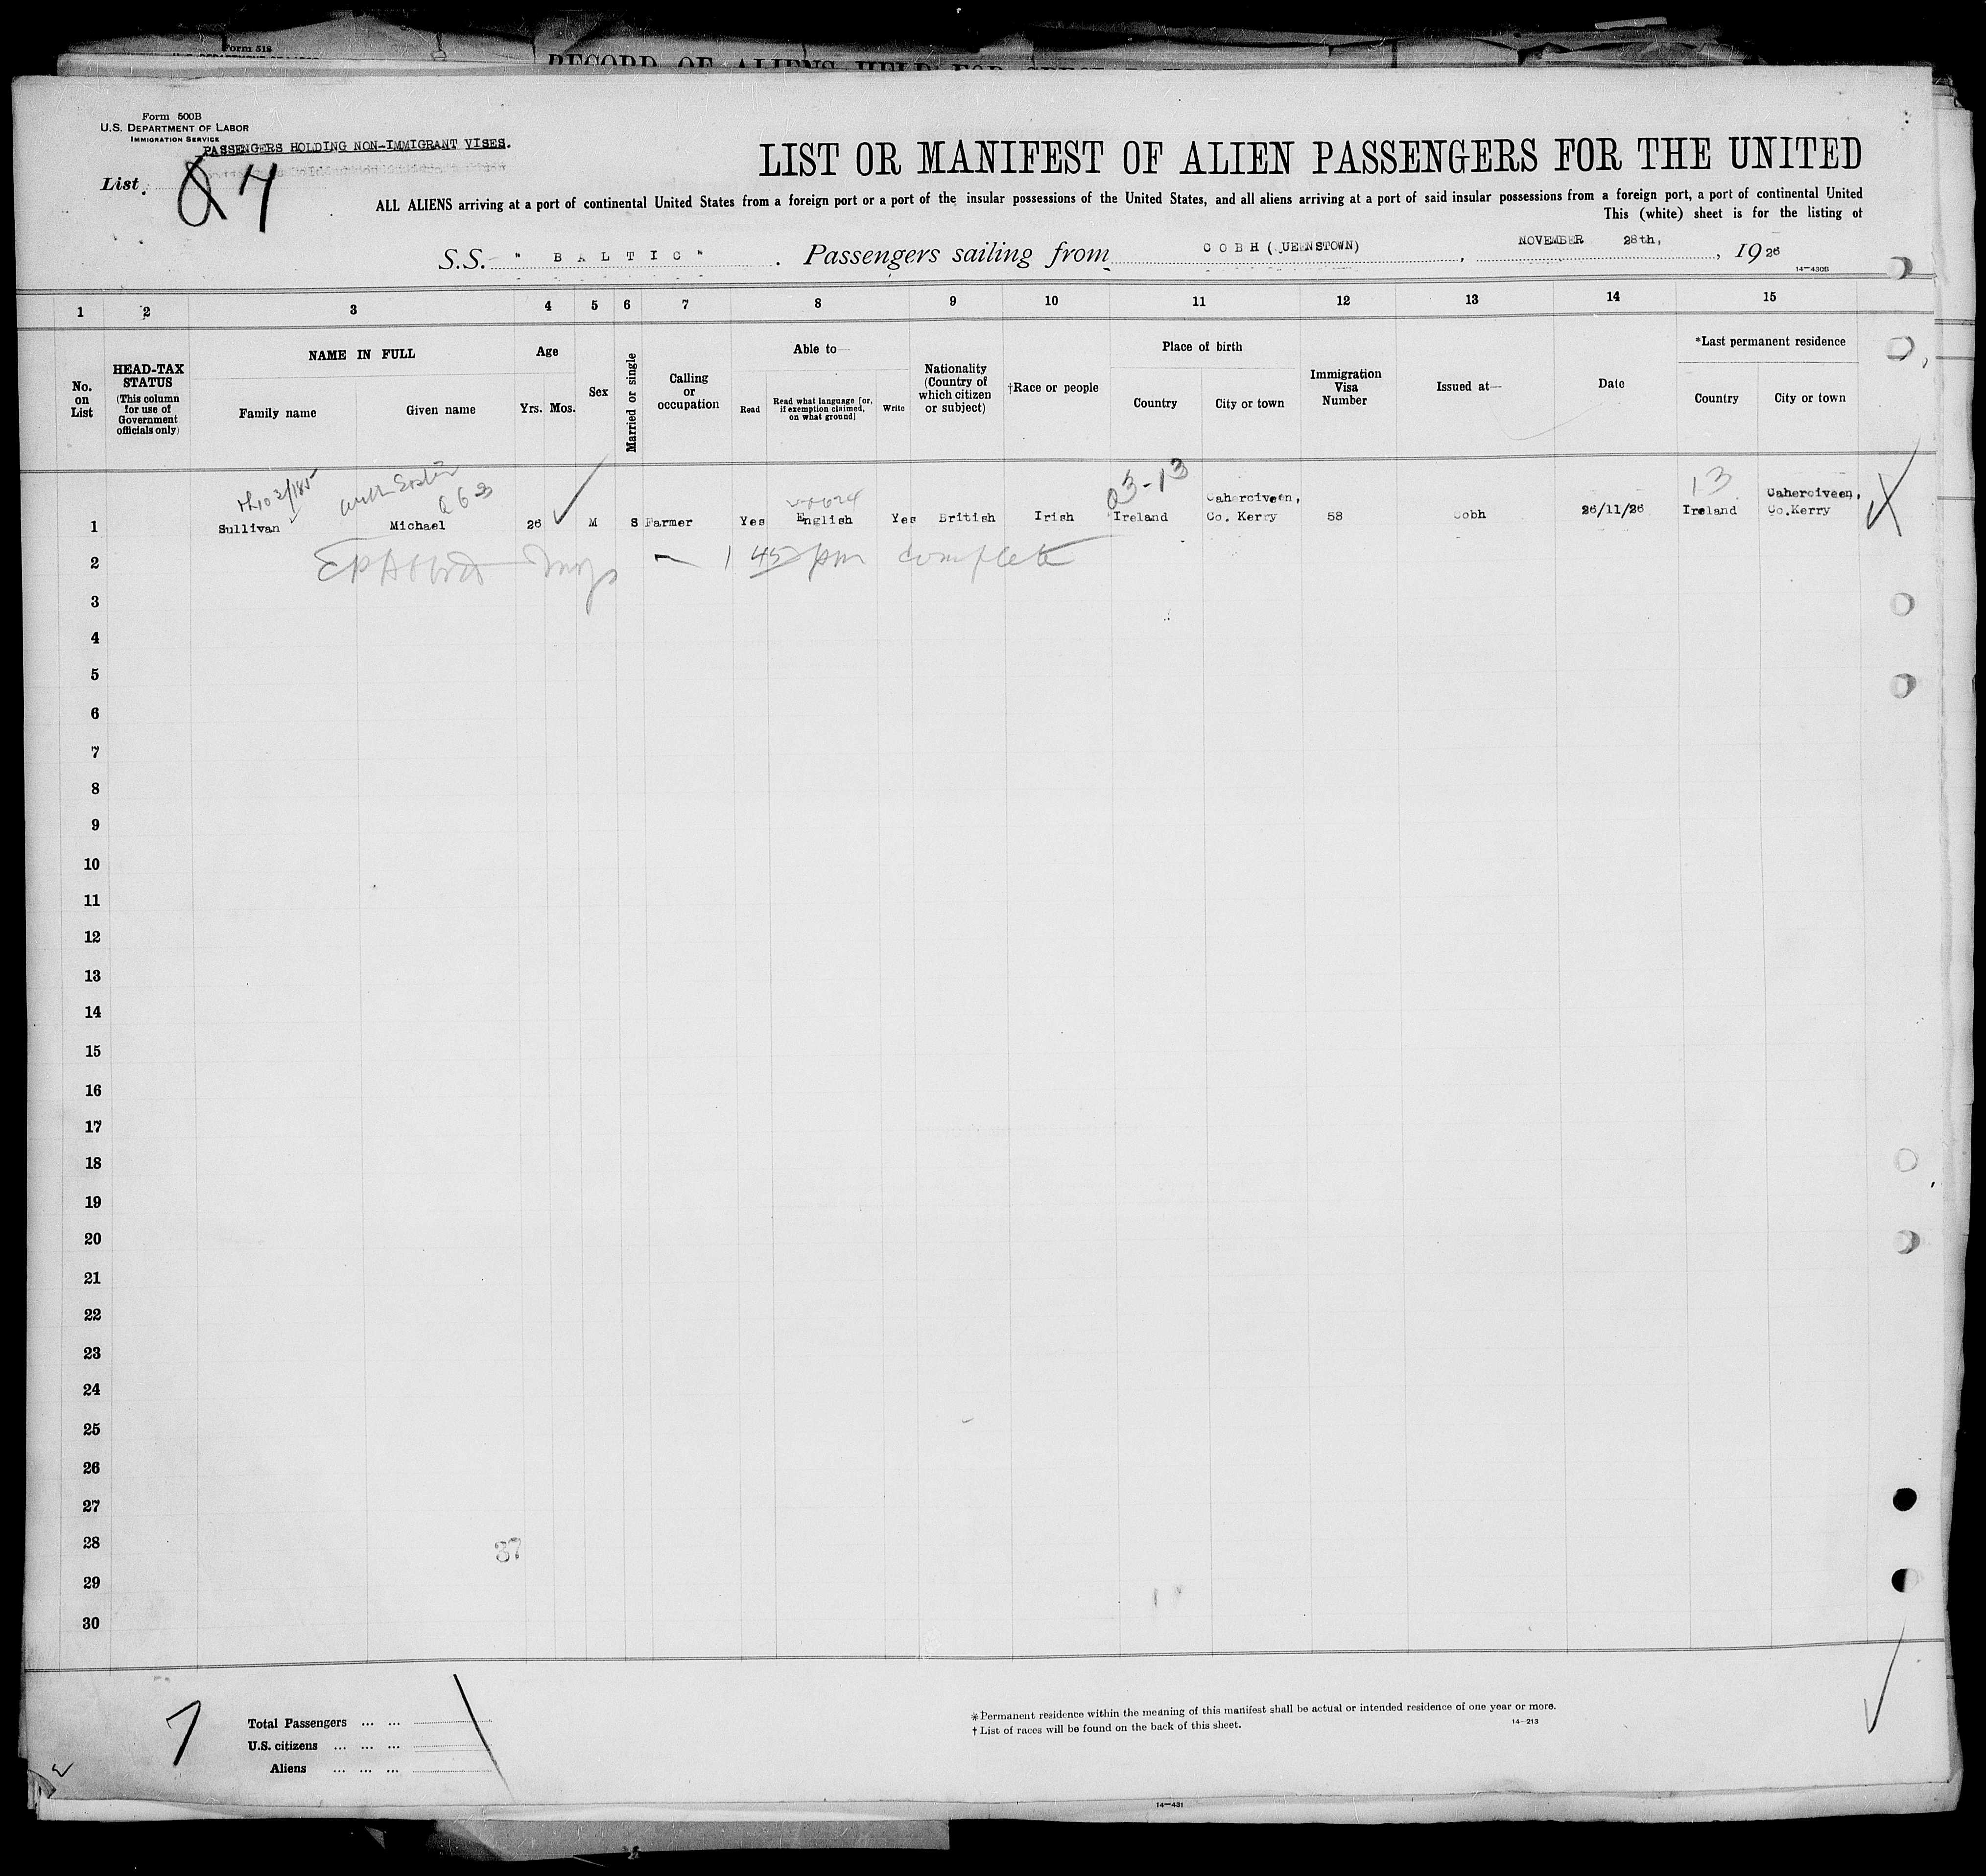 Form 518
RECORD OF ALIENS HELD FOR
Form 500B
U.S. DEPARTMENT OF LABOR
IMMIGRATION SERVICE
PASSENGERS HOLDING NON-IMMIGRANT VISES.
List
LIST OR MANIFEST OF ALIEN PASSENGERS FOR THE UNITED
ALL ALIENS arriving at a port of continental United States from a foreign port or a port of the insular possessions of the United States, and all aliens arriving at a port of said insular possessions from a foreign port, a port of continental United
This (white) sheet is for the listing of
S.S. " B A L T I C " . Passengers sailing from C O B H ( UEENSTOWN) , NOVEMBER 28th, , 1926
14—430B
1 2 3 4 5 6 7 8 9 10 11 12 13 14 15
No. on List
HEAD-TAX STATUS
(This column for use of Government officials only)
NAME IN FULL
Family name Given name
Age
Yrs. Mos.
Sex
Married or single
Calling or occupation
Able to—
Read
Read what language [or, if exemption claimed, on what ground]
Write
Nationality (Country of which citizen or subject)
†Race or people
Place of birth
Country City or town
Immigration Visa Number
Issued at—
Date
*Last permanent residence
Country City or town
03-13
13
Q63
1 Sullivan Michael 26 M S Farmer Yes English Yes British Irish Ireland Caherciveen, Co. Kerry 58 Cobh 26/11/26 Ireland Caherciveen, Co.Kerry
2
— 1 45 pm complete
3
4
5
6
7
8
9
10
11
12
13
14
15
16
17
18
19
20
21
22
23
24
25
26
27
28
37
29
30
7
Total Passengers ... ...
U.S. citizens ... ... ...
Aliens ... ... ...
* Permanent residence within the meaning of this manifest shall be actual or intended residence of one year or more.
† List of races will be found on the back of this sheet.
14—213
14—431